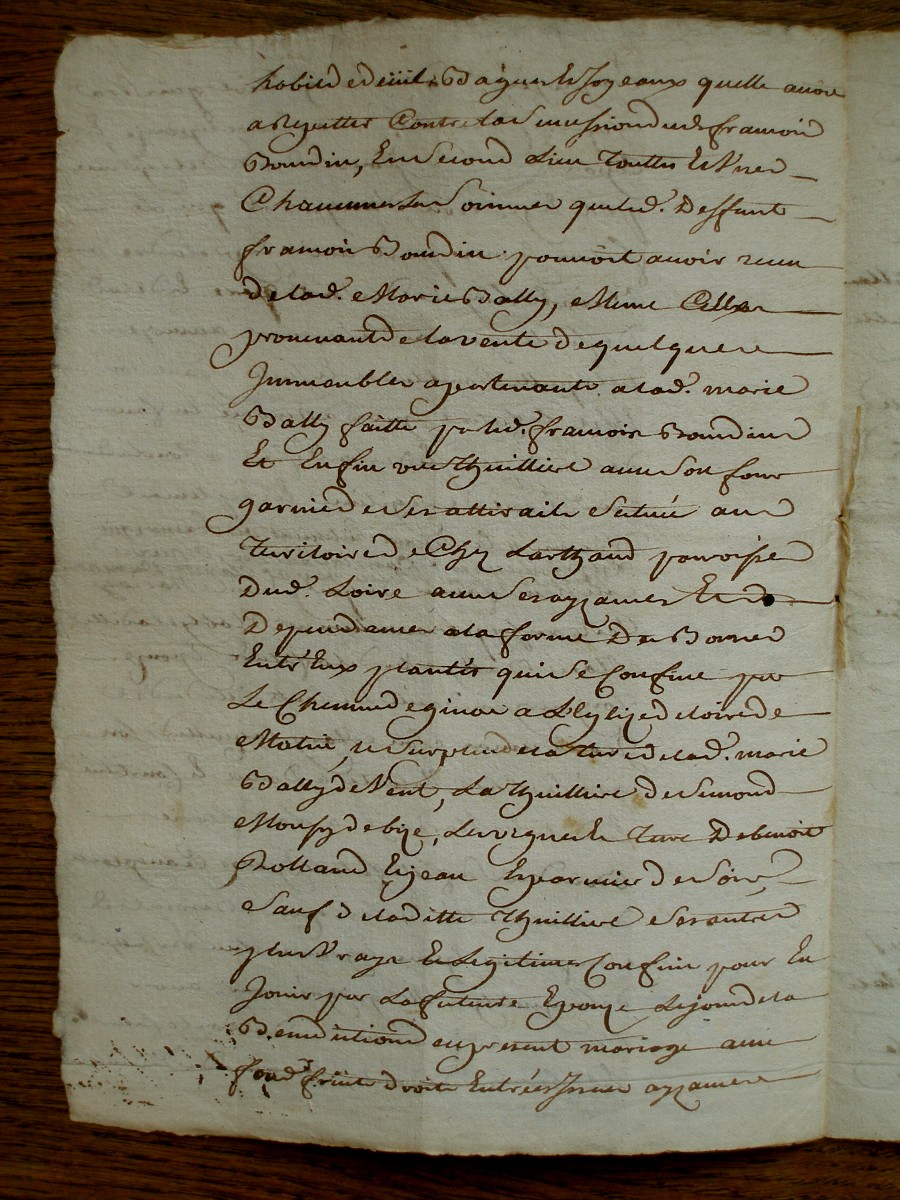 habit de deüil, Bagues Et Joyeaux quelle auroit
a Repetter Contre la Sucession dud. francois
Boudin, En Second Lieu Touttes Et Unes
Chacunnes les Sommes que led. Deffunt
francois Boudin pouuoit auoir receu
de lad. Marie Bally, Meme Celles
prouenant de la vente de quelques
Immeubles apartenants a lad. marie
Bally faitte par led. francois Boudin
Et Enfin une thuilliere auec Son four
garnie de Ses attirails Scituée au
Territoire de Chez Larthaud parroisse
Dud. Loire auec Ses ayzances Et
Dependances a la forme Des Bornes
Entr'Eux plantés qui Se Confine par
Le Chemin de a L'Eglize de Loire de
Matin, le Surplus de la Terre de lad. marie
Bally de Vent, La thuilliere de Simond
de bize, Les vignes Et Terre De benoit
Rolland Et jean de Soir,
Sauf de laditte thuilliere Ses autres
plus Vrays Et Legitimes Confins pour En
Jouir par La future Epouze Le jour de la
Benediction du present mariage auec
fond, fruits droits Entrées Issues ayzances